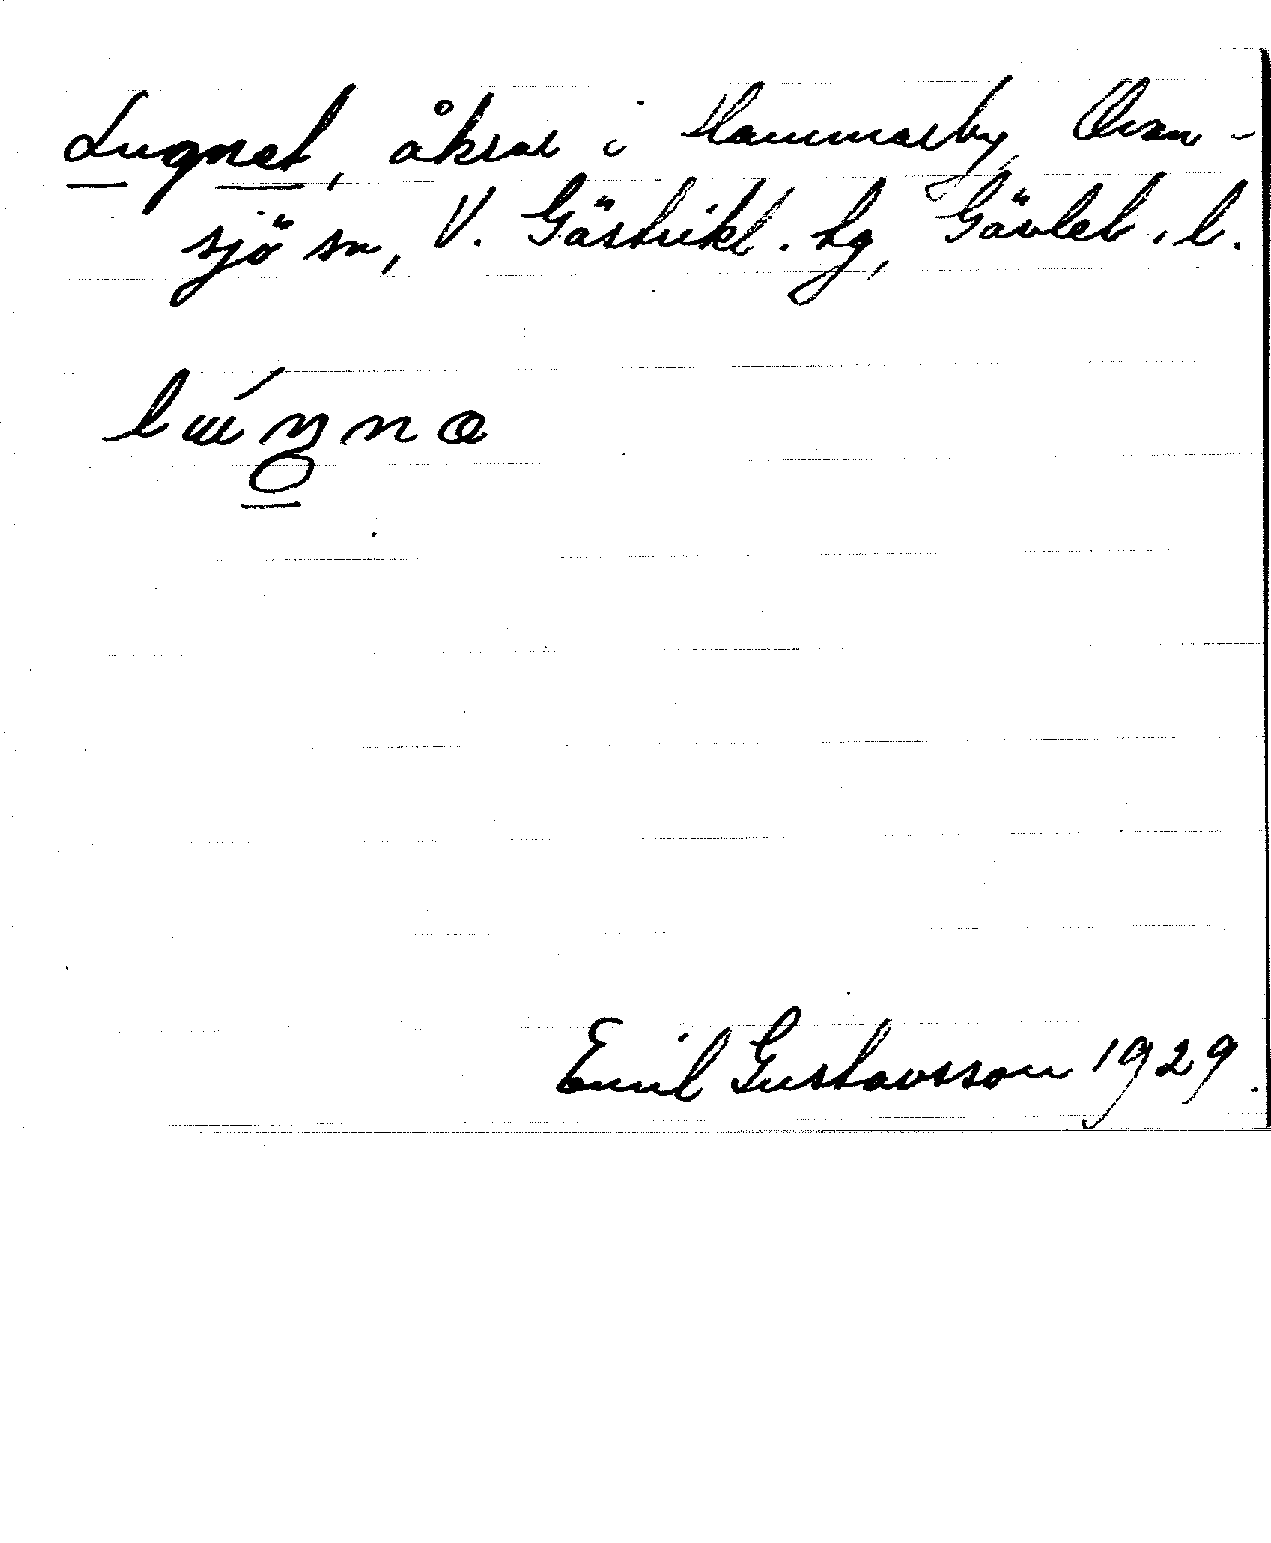 Lugnet, åkrar i Hammarby, Ovan-
sjö sn, V. Gästrikl. tg, Gävleb. l.
Emil Gustavsson 1929.